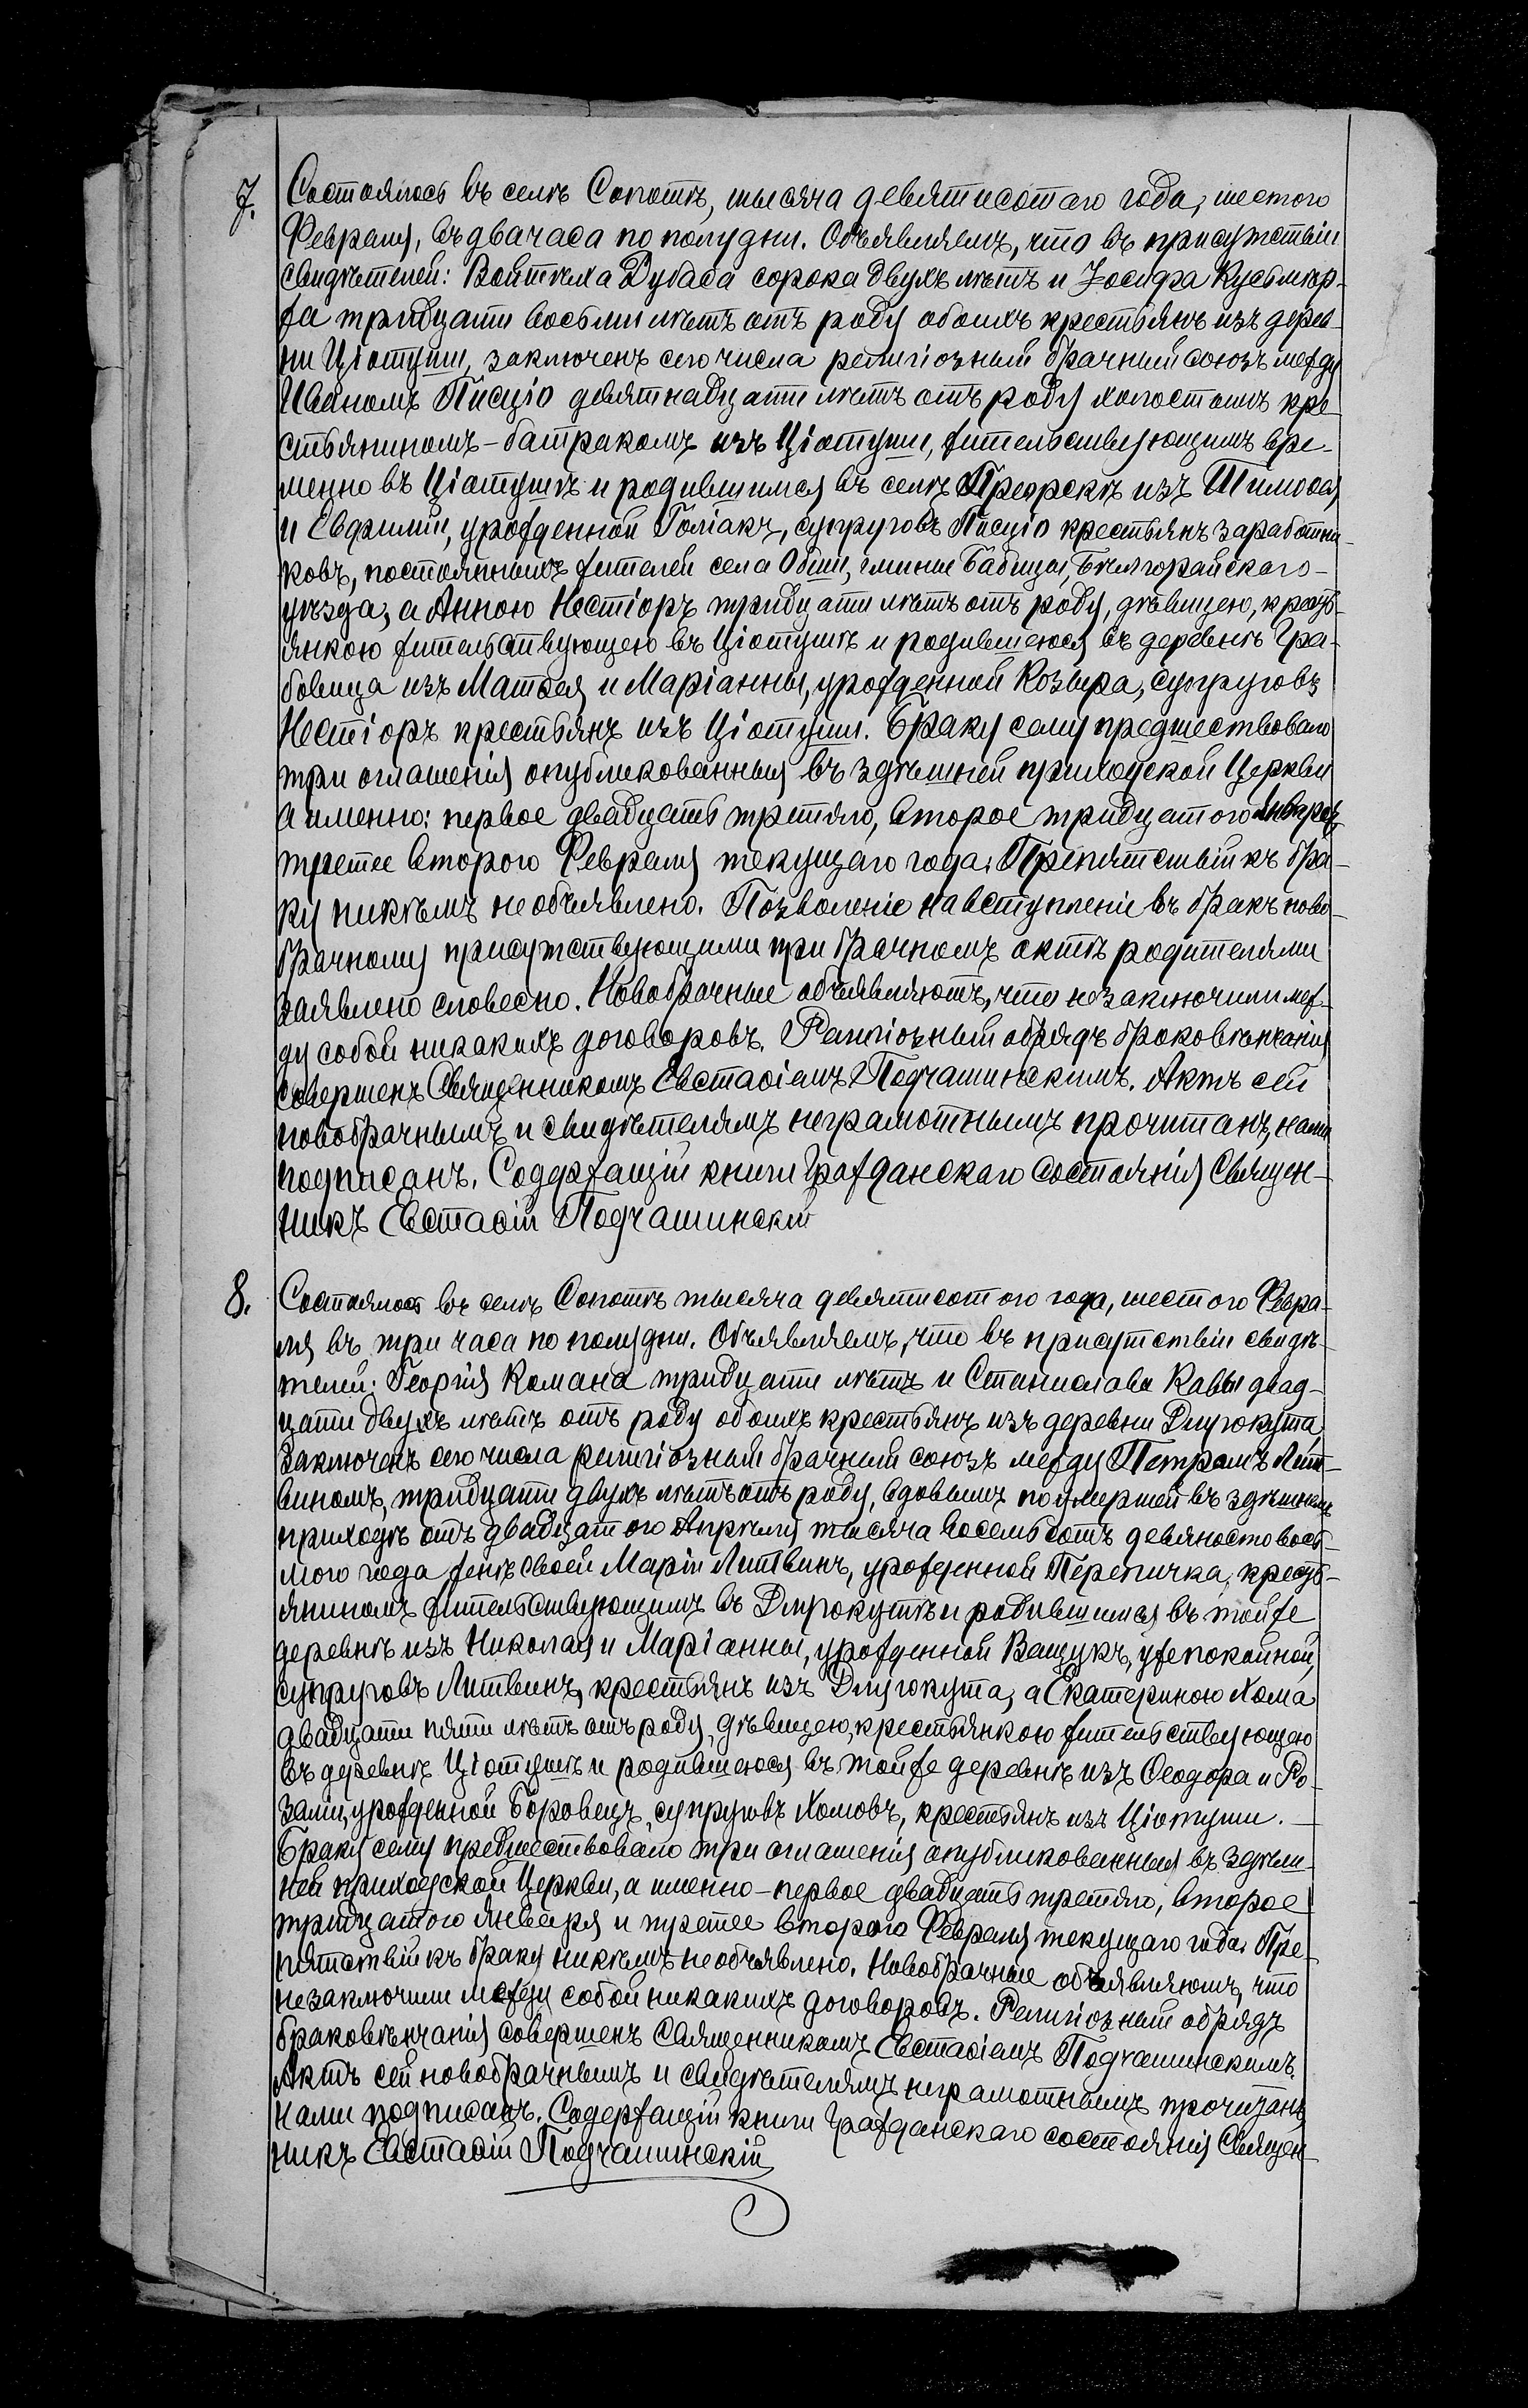 7. Состоялось въ селѣ Сопотѣ, тысяча девятисотаго года, шестого
Февраля, въ два часа по полудни. Объявляемъ, что въ присутствіи
свидѣтелей: Войтѣха Дубаса сорока двухъ лѣтъ и Іосифа Кусьмер-
жа тридцати восьми лѣтъ отъ роду обоихъ крестьянъ изъ дерев-
ни Ціотуши, заключенъ сего числа религіозный брачный союзъ между
Иваномъ Писціо девятнадцати лѣтъ отъ роду холостымъ кре-
стьяниномъ-батракомъ изъ Ціотуши, жительствующимъ вре-
менно въ Ціотушѣ и родившимся въ селѣ из Тимоѳея
и Евфиміи, урожденной Голіакъ, супруговъ Писціо крестьянъ заработни-
ковъ, постоянныхъ жителей села Обши, гмины Бабицы, Бѣлгорайскаго
уѣзда, а Анною Нестіоръ тридцати лѣтъ отъ роду, дѣвицею, кресть-
янкою жительствующею въ Ціотушѣ и родившеюся въ деревнѣ Гра-
бовица изъ Матѳея и Маріанны, урожденной Козыра, супруговъ
Нестіоръ крестьянъ изъ Ціотуши. Браку сему предшествовало
три оглашенія опубликованныя въ здѣшней приходской Церкви
а именно: первое двадцать третяго, второе тридцатого Января,
третее второго Февраля текущаго года. Препятствій къ бра-
ку никѣмъ не объявлено. Позволеніе на вступленіе въ бракъ ново-
брачному присутствующими при брачномъ актѣ родителями
заявлено словесно. Новобрачные объявляютъ, что не заключили меж-
ду собой никакихъ договоровъ. Религіозный обрядъ браковѣнчанія
совершенъ Священникомъ Евстаѳіемъ Подчашинскимъ. Актъ сей
новобрачнымъ и свидѣтелямъ неграмотнымъ прочитанъ, нами
подписанъ. Содержащій книги Гражданскаго состоянія Священ-
никъ Евстаѳій Подчашинскій
8. Состоялось въ селѣ Сопотѣ тысяча девятисотого года, шестого Февра-
ля въ три часа по полудни. Объявляемъ, что въ присутствіи свидѣ-
телей: Георгія Комана тридцати лѣтъ и Станислава Кавы двад-
цати двухъ лѣтъ отъ роду обоихъ крестьянъ изъ деревни Длугокута,
заключенъ сего числа религіозный брачный союзъ между Петромъ Лит-
виномъ, тридцати двухъ лѣтъ отъ роду, вдовымъ по умершей въ здѣшнемъ
приходѣ отъ двадцатого Апрѣля тысяча восемьсотъ девяносто вось-
мого года женѣ своей Маріи Литвинъ, урожденной Перепичка, кресть-
яниномъ жительствующимъ въ Длугокутѣ и родившимся въ тойже
деревнѣ изъ Николая и Маріанны, урожденной Ващукъ, уже покойной,
супруговъ Литвинъ, крестьянъ изъ Длугокута, а Екатериною Хома
двадцати пяти лѣтъ отъ роду, дѣвицею, крестьянкою жительствующею
въ деревнѣ Ціотушѣ и родившеюся въ тойже деревнѣ изъ Ѳеодора и Ро-
заліи, урожденной Боровецъ, супруговъ Хомовъ, крестьянъ изъ Ціотуши.
Браку сему предшествовало три оглашенія опубликованныя въ здѣш-
ней приходской Церкви, а именно - первое двадцать третяго, второе
тридцатого января и третее второго Февраля текущаго года. Пре-
пятствій къ браку никѣмъ не объявлено. Новобрачные объявляютъ, что
незаключили между собой никакихъ договоровъ. Религіозный обрядъ
браковѣнчанія совершенъ Священникомъ Евстаѳіемъ Подчашинскимъ.
Актъ сей новобрачнымъ и свидѣтелямъ неграмотнымъ прочитанъ,
нами подписанъ. Содержащій книги Гражданскаго состоянія Священ-
никъ Евстаѳій Подчашинскій